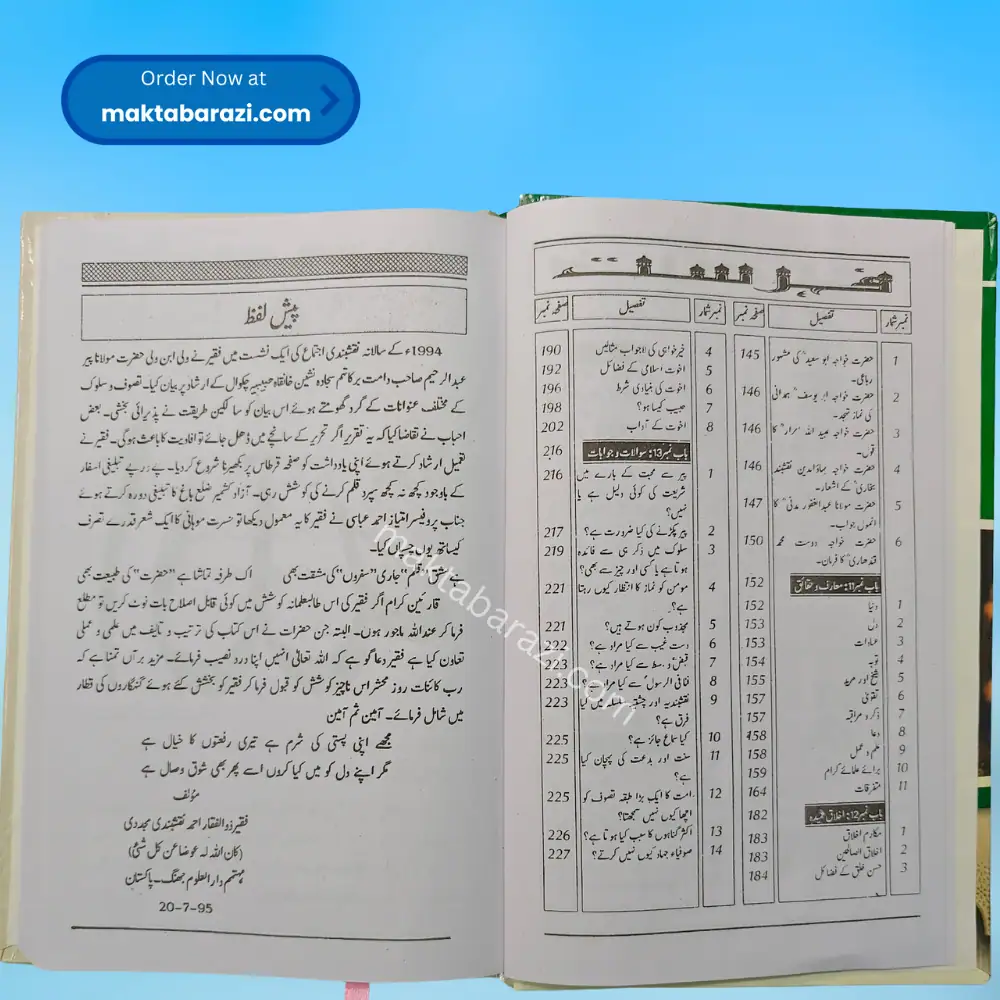 Order Now at
maktabarazi.com
پیش لفظ
1994ء کے سالانہ نقشبندی اجتماع کی ایک نشست میں فقیر نے ولی ابن ولی حضرت مولانا پیر
عبدالرحیم صاحب دامت برکاتہم سجادہ نشین خانقاہ حبیبیہ چکوال کے ارشاد پر بیان کیا۔ تصوف و سلوک
کے مختلف عنوانات کے گرد گھومتے ہوئے اس بیان کو سالکین طریقت نے پذیرائی بخشی۔ بعض
احباب نے تقاضا کیا کہ یہ تقریر اگر تحریر کے سانچے میں ڈھل جائے تو افادیت کا باعث ہوگی۔ فقیر نے
تعمیل ارشاد کرتے ہوئے اپنی یادداشت کو صفحہ قرطاس پر بکھیرنا شروع کر دیا۔ پے در پے تبلیغی اسفار
کے باوجود کچھ نہ کچھ سپرد قلم کرنے کی کوشش رہی۔ آزاد کشمیر ضلع باغ کا تبلیغی دورہ کرتے ہوئے
جناب پروفیسر امتیاز احمد عباسی نے فقیر کا یہ معمول دیکھا تو حسرت موہانی کا ایک شعر قدرے تصرف
کیساتھ یوں چسپاں کیا۔
ہے مشق "قلم" جاری "سفروں" کی مشقت بھی اک طرفہ تماشا ہے "حضرت" کی طبیعت بھی
قارئین کرام اگر فقیر کی اس طالبعلمانہ کوشش میں کوئی قابل اصلاح بات نوٹ کریں تو مطلع
فرما کر عنداللہ ماجور ہوں۔ البتہ جن حضرات نے اس کتاب کی ترتیب و تالیف میں علمی و عملی
تعاون کیا ہے فقیر دعا گو ہے کہ اللہ تعالیٰ انہیں اپنا درد نصیب فرمائے۔ مزید برآں تمنا ہے کہ
رب کائنات روز محشر اس ناچیز کوشش کو قبول فرما کر فقیر کو بخشش کئے ہوئے گنہگاروں کی قطار
میں شامل فرمائے۔ آمین ثم آمین
مجھے اپنی پستی کی شرم ہے تیری رفعتوں کا خیال ہے
مگر اپنے دل کو میں کیا کروں اسے پھر بھی شوق وصال ہے
مؤلف
فقیر ذوالفقار احمد نقشبندی مجددی
(کان اللہ لہ عوضا عن کل شئی)
مہتمم دارالعلوم جھنگ۔ پاکستان
20-7-95
نمبر شمار تفصیل صفحہ نمبر
1 حضرت خواجہ ابو سعیدؒ کی مشہور 145
رباعی۔
2 حضرت خواجہ ابو یوسفؒ ہمدانی 146
کی نماز تہجد۔
3 حضرت خواجہ عبید اللہ احرارؒ کا 146
قول۔
4 حضرت خواجہ بہاؤالدین نقشبند 146
بخاریؒ کے اشعار۔
5 حضرت مولانا عبدالغفور مدنیؒ کا 147
انمول جواب۔
6 حضرت خواجہ دوست محمد 150
قندھاریؒ کا فرمان۔
باب نمبر11: معارف و حقائق 152
1 دنیا 152
2 دل 153
3 عبادات 153
4 توبہ 154
5 شیخ اور مرید 155
6 تقویٰ 157
7 ذکر و مراقبہ 157
8 دعا 158
9 علم و عمل 158
10 برائے علمائے کرام 159
11 متفرقات 164
باب نمبر12: اخلاق حمیدہ 182
1 مکارم اخلاق 183
2 اخلاق الصالحین 183
3 حسن خلق کے فضائل 184
نمبر شمار تفصیل صفحہ نمبر
4 خیر خواہی کی لاجواب مثالیں 190
5 اخوت اسلامی کے فضائل 192
6 اخوت کی بنیادی شرط 196
7 حبیب کیسا ہو؟ 198
8 اخوت کے آداب 202
باب نمبر13: سوالات و جوابات 216
1 پیر سے محبت کے بارے میں 216
شریعت کی کوئی دلیل ہے یا
نہیں؟
2 پیر پکڑنے کی کیا ضرورت ہے؟ 217
3 سلوک میں ذکر ہی سے فائدہ 219
ہوتا ہے یا کسی اور چیز سے بھی؟
4 مومن کو نماز کا انتظار کیوں رہتا 221
ہے؟
5 مجذوب کون ہوتے ہیں؟ 221
6 دست غیب سے کیا مراد ہے؟ 222
7 قبض و بسط سے کیا مراد ہے؟ 223
8 فنا فی الرسولؐ سے کیا مراد ہے؟ 223
9 نقشبندیہ اور چشتیہ سلسلہ میں کیا 223
فرق ہے؟
10 کیا سماع جائز ہے؟ 225
11 سنت اور بدعت کی پہچان کیا 225
ہے؟
12 امت کا ایک بڑا طبقہ تصوف کو 225
اچھا کیوں نہیں سمجھتا؟
13 اکثر گناہوں کا سبب کیا ہوتا ہے؟ 226
14 صوفیاء جہاد کیوں نہیں کرتے؟ 227
maktabarazi.com